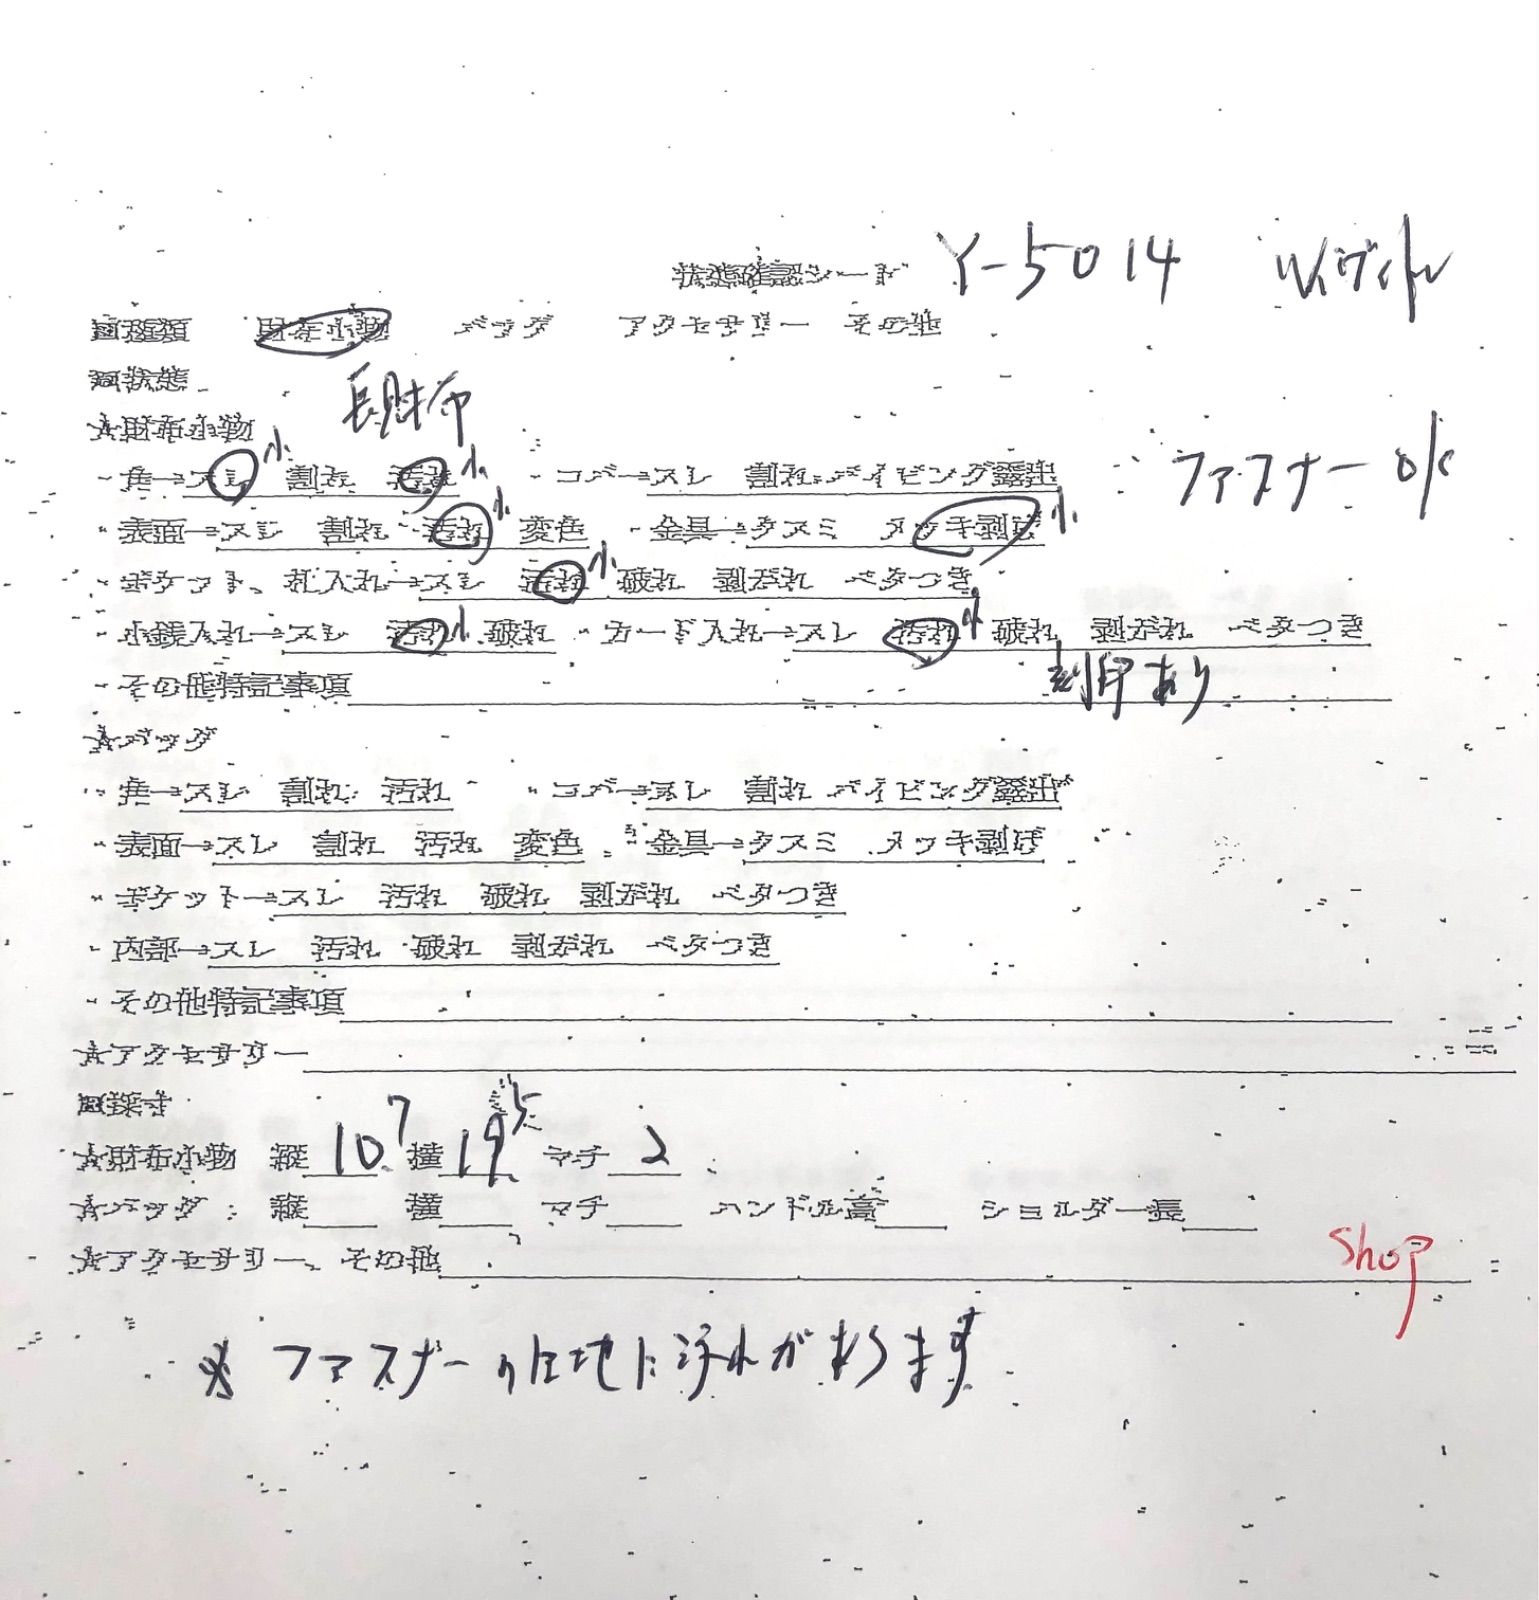 状態確認シード Y-5014 ルイヴィトン
■種類 財布小物 バッグ アクセサリー その他
■状態
長財布
☆財布小物
・角→スレ小 割れ 汚れ小 ・コバ→スレ 割れ パイピング露出 ファスナー ok
・表面→スレ 割れ 汚れ小 変色 ・金具→クスミ メッキ剥げ小
・ポケット、札入れ→スレ 汚れ小 破れ 剥がれ ベタつき
・小銭入れ→スレ 汚れ小 破れ ・カード入れ→スレ 汚れ小 破れ 剥がれ ベタつき
・その他特記事項 刻印あり
☆バッグ
・角→スレ 割れ 汚れ ・コバ→スレ 割れ パイピング露出
・表面→スレ 割れ 汚れ 変色 ・金具→クスミ メッキ剥げ
・ポケット→スレ 汚れ 破れ 剥がれ ベタつき
・内部→スレ 汚れ 破れ 剥がれ ベタつき
・その他特記事項
☆アクセサリー
■採寸
☆財布小物 縦 10 7 横 19 5 マチ 2
☆バッグ 縦 横 マチ ハンドル高 ショルダー長
☆アクセサリー、その他 Shop
※ ファスナーの生地に汚れがあります